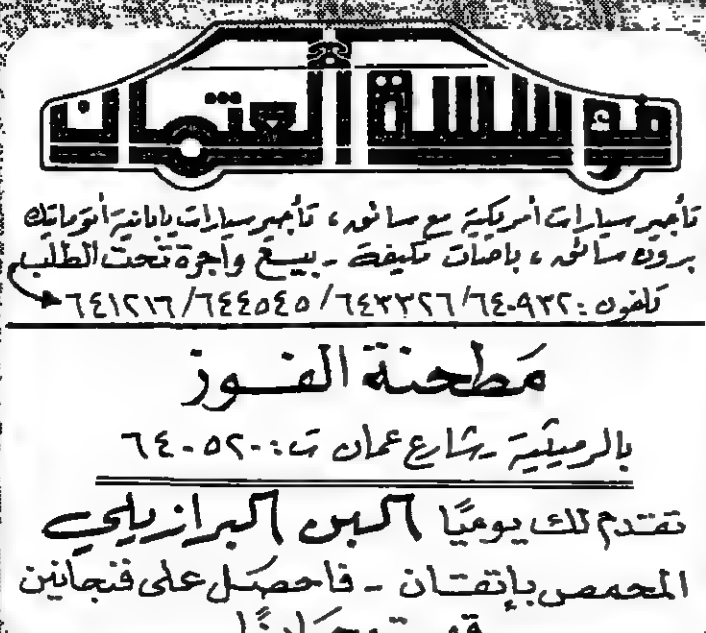 مؤسسة العثمان
تأجير سيارات أمريكية مع سائق ، تأجير سيارات يابانية أتوماتيك
بدون سائق ، باصات مكيفة - بيع وأجرة تحت الطلب
تلفون : ٦٤٠٩٣٢/ ٦٤٣٣٢٦/ ٦٤٤٥٤٥/ ٦٤١٢١٦
مطحنة الفوز
بالرميثية - شارع عمان ت : ٦٤٠٥٢٠
تقدم لك يوميًا البن البرازيلي
المحمص بإتقان - فاحصل على فنجانين
قهوة مجانًا